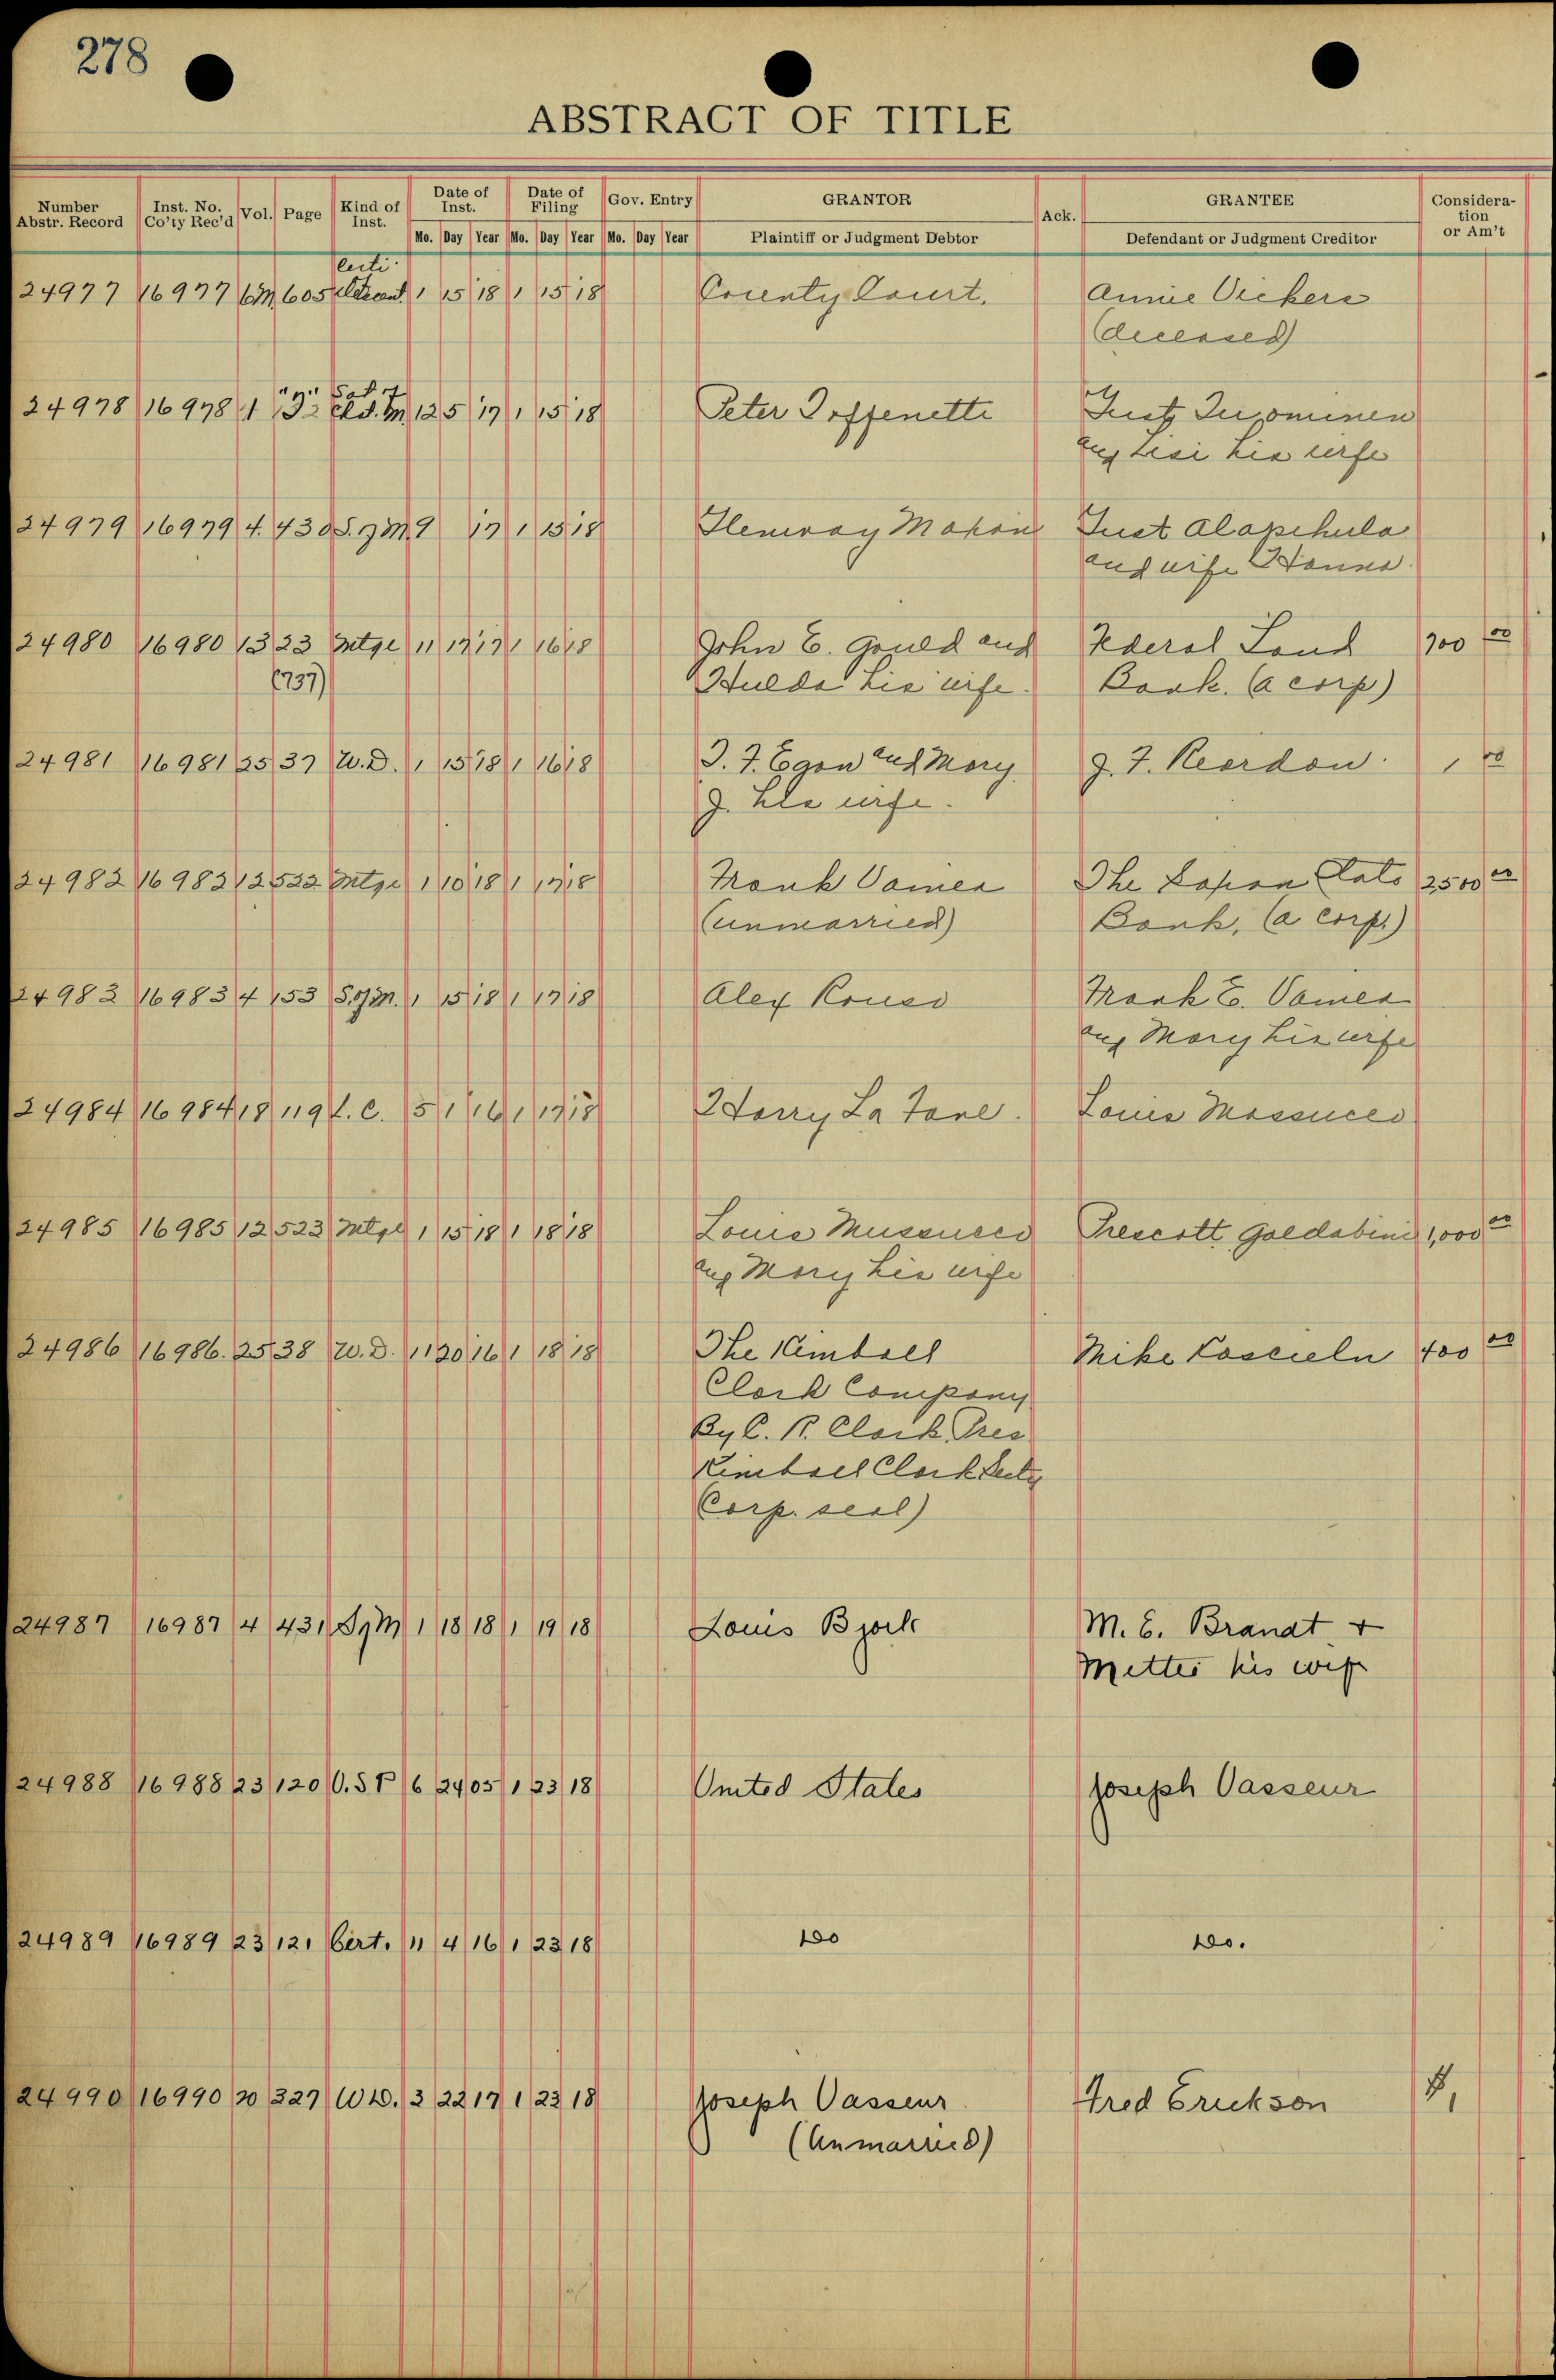 278
ABSTRACT OF TITLE
Number Abstr. Record Inst. No. Co'ty Rec'd Vol. Page Kind of Inst. Date of Inst. Date of Filing Gov. Entry GRANTOR Ack. GRANTEE Considera-tion or Am't
Mo. Day Year Mo. Day Year Mo. Day Year Plaintiff or Judgment Debtor Defendant or Judgment Creditor
24977 16977 605 1 15 18 1 15 18 County Court. Annie Vickers
(deceased)
24978 16978 1 12 5 17 1 15 18 Peter
his wife
24979 16979 4 430 S.of M 9 17 1 15 18 Just
and wife Hanna.
24980 16980 13 23 Mtge 11 19 17 1 16 18 John E. Gould and Federal Land 700 00
(737) Hulda his wife. Bank. (a corp)
24981 16981 25 37 W.D. 1 15 18 1 16 18 and Mary J. F. Reardon. 1 00
J. his wife.
24982 16982 12 522 Mtge 1 10 18 1 17 18 Frank The State 2500 00
(unmarried) Bank, (a corp.)
24983 16983 4 153 S.of M. 1 15 18 1 17 18 Alex Frank E.
and Mary his wife
24984 16984 18 119 L.C. 5 1 16 1 17 18 Harry La Louis
24985 16985 12 523 Mtge 1 15 18 1 18 18 Louis Prescott Goldabini 1,000 00
and Mary his wife
24986 16986. 25 38 W.D. 11 20 16 1 18 18 The Kimball Mike 400 00
Clark Company
By C. R. Clark Pres
Kimball Clark
Corp. seal)
24987 16987 4 431 S of M 1 18 18 1 19 18 Louis Bjork M. E. Brandt +
Mettie his wife
24988 16988 23 120 U.S P 6 24 05 1 23 18 United States Joseph Vasseur
24989 16989 23 121 Cert. 11 4 16 1 23 18 Do Do.
24990 16990 20 327 WD. 3 22 17 1 23 18 Joseph Vasseur Fred Erickson $1
(Unmarried)